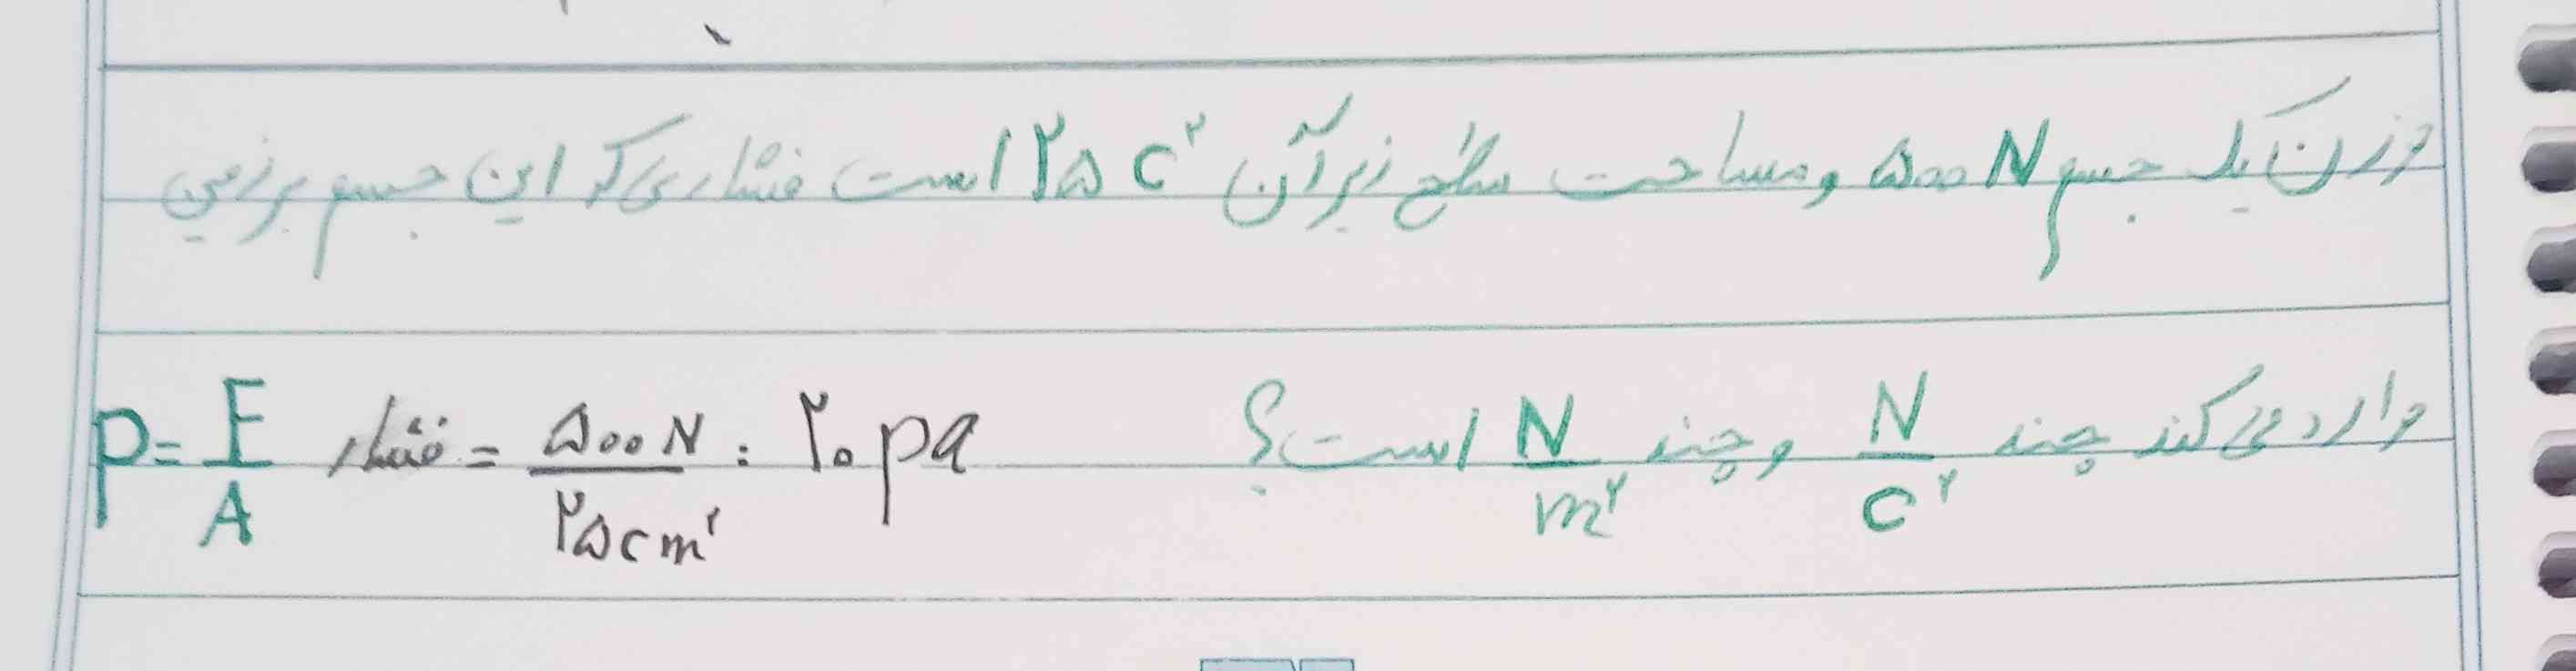 وزن یک جسم ۵۰۰ N و مساحت سطح زیر آن ۲۵ c² است فشاری که این جسم بر زمین
وارد می کند چند N/c² و چند N/m² است؟
P = F/A فشار = ۵۰۰ N / ۲۵ cm² = ۲۰ pa